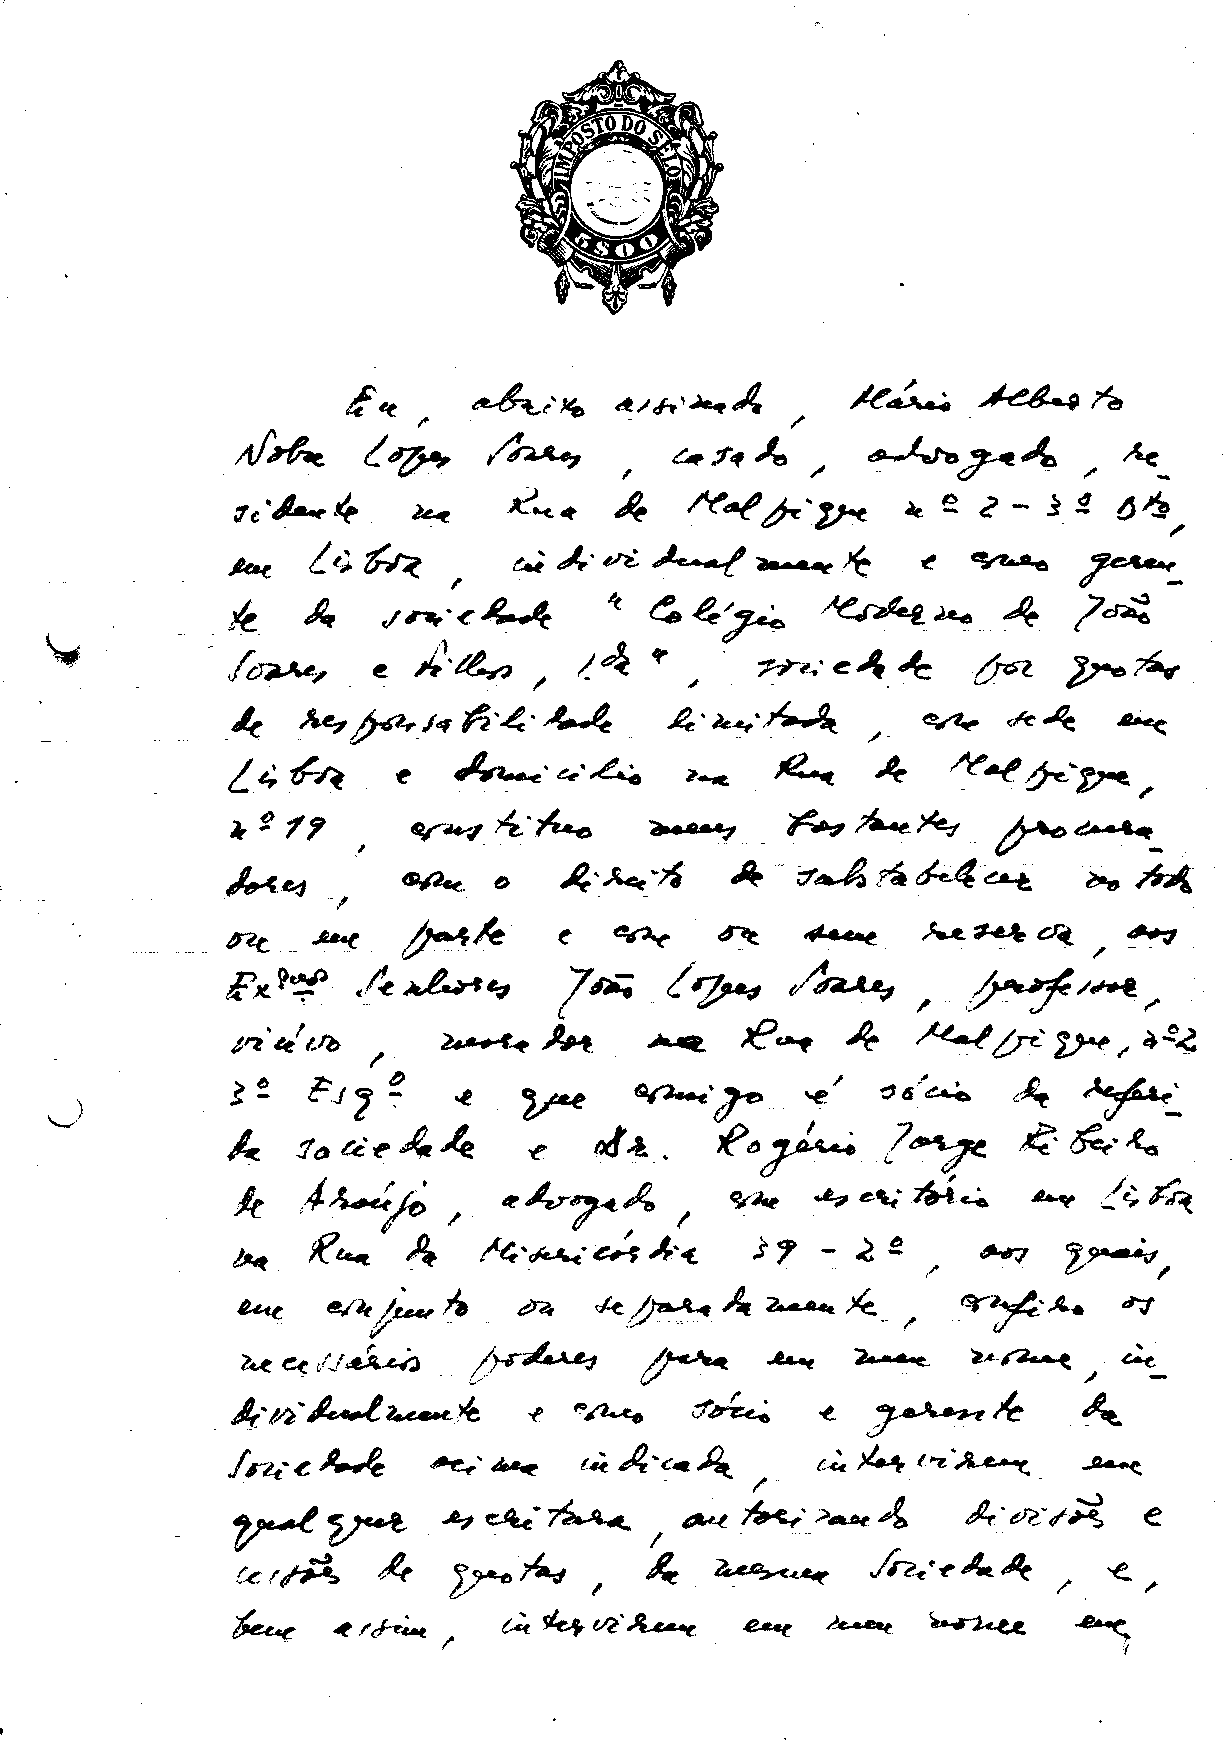 IMPOSTO DO SELO
5$00
Eu, abaixo assinado, Mário Alberto
Nobre Lopes Soares, casado, advogado, re-
sidente na Rua de Malpique nº 2 - 3º Dtº,
em Lisboa, individualmente e como geren-
te da sociedade "Colégio Moderno de João
Soares e Filhos, Lda", sociedade por quotas
de responsabilidade limitada, com sede em
Lisboa e domicilio na Rua de Malpique,
nº 19, constituo meus bastantes procura-
dores, com o direito de substabelecer no todo
ou em parte e com ou sem reserva, aos
Exmos Senhores João Lopes Soares, professor,
viúvo, morador na Rua de Malpique, nº 2
3º Esqº e que comigo é sócio da referi-
da sociedade e Dr. Rogério Jorge Ribeiro
de Araújo, advogado, com escritório em Lisboa
na Rua da Misericórdia 39 - 2º, aos quais,
em conjunto ou separadamente, confiro os
necessários poderes para em meu nome, in-
dividualmente e como sócio e gerente da
sociedade acima indicada, intervirem em
qualquer escritura, autorizando divisões e
cessões de quotas, da mesma sociedade, e,
bem assim, intervirem em meu nome em,